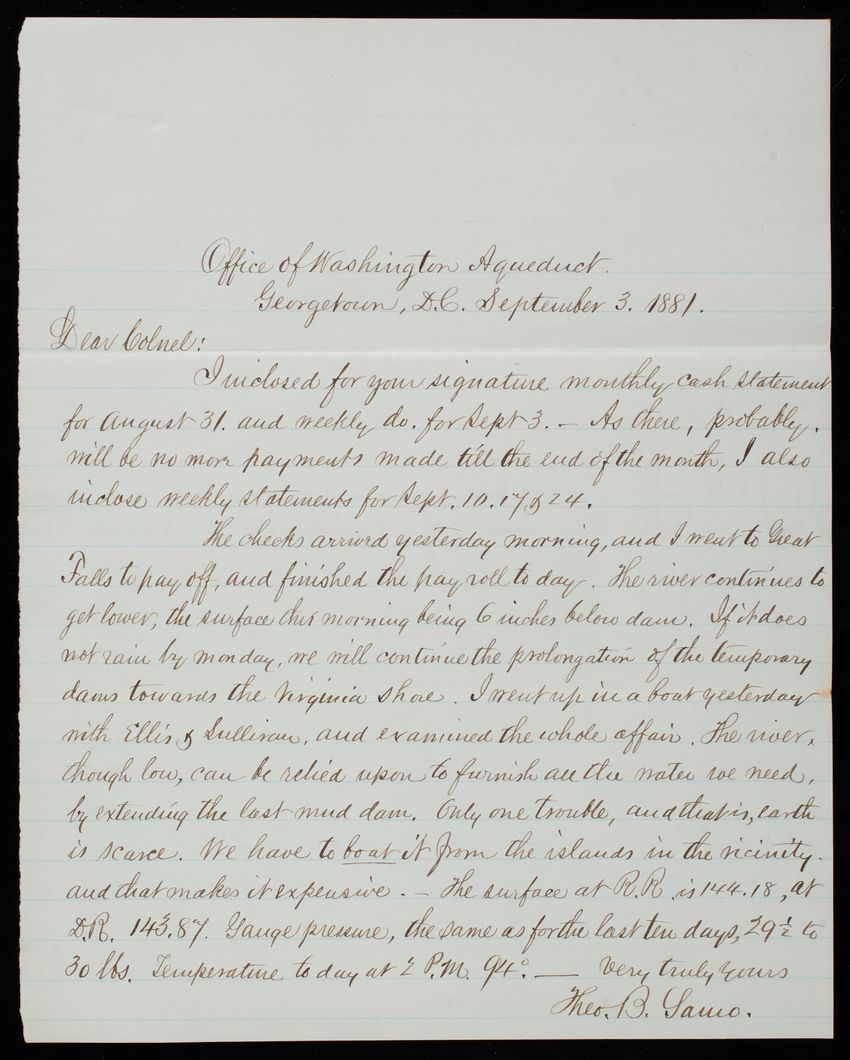 Office of Washington Aqueduct.
Georgetown, D.C. September 3. 1881.
Dear Colnel:
I inclosed for your signature monthly cash statement
for August 31. and weekly do. for Sept 3. — As there, probably,
will be no more payments made till the end of the month, I also
inclose weekly statements for Sept. 10. 17 & 24.
The checks arrived yesterday morning, and I went to Great
Falls to pay off, and finished the pay roll to day. The river continues to
get lower, the surface this morning being 6 inches below dam. If it does
not rain by monday, we will continue the prolongation of the temporary
dams towards the Virginia shore. I went up in a boat yesterday
with Ellis & Sullivan, and examined the whole affair. The river,
though low, can be relied upon to furnish all the water we need,
by extending the last mud dam. Only one trouble, and that is, earth
is scarce. We have to boat it from the islands in the vicinity.
and that makes it expensive. — The surface at R.R. is 144.18, at
D.R. 143.87. Gauge pressure, the same as for the last ten days, 29½ to
30 lbs. Temperature to day at 2 P.M. 94°. — Very truly yours
Theo. B. Samo.